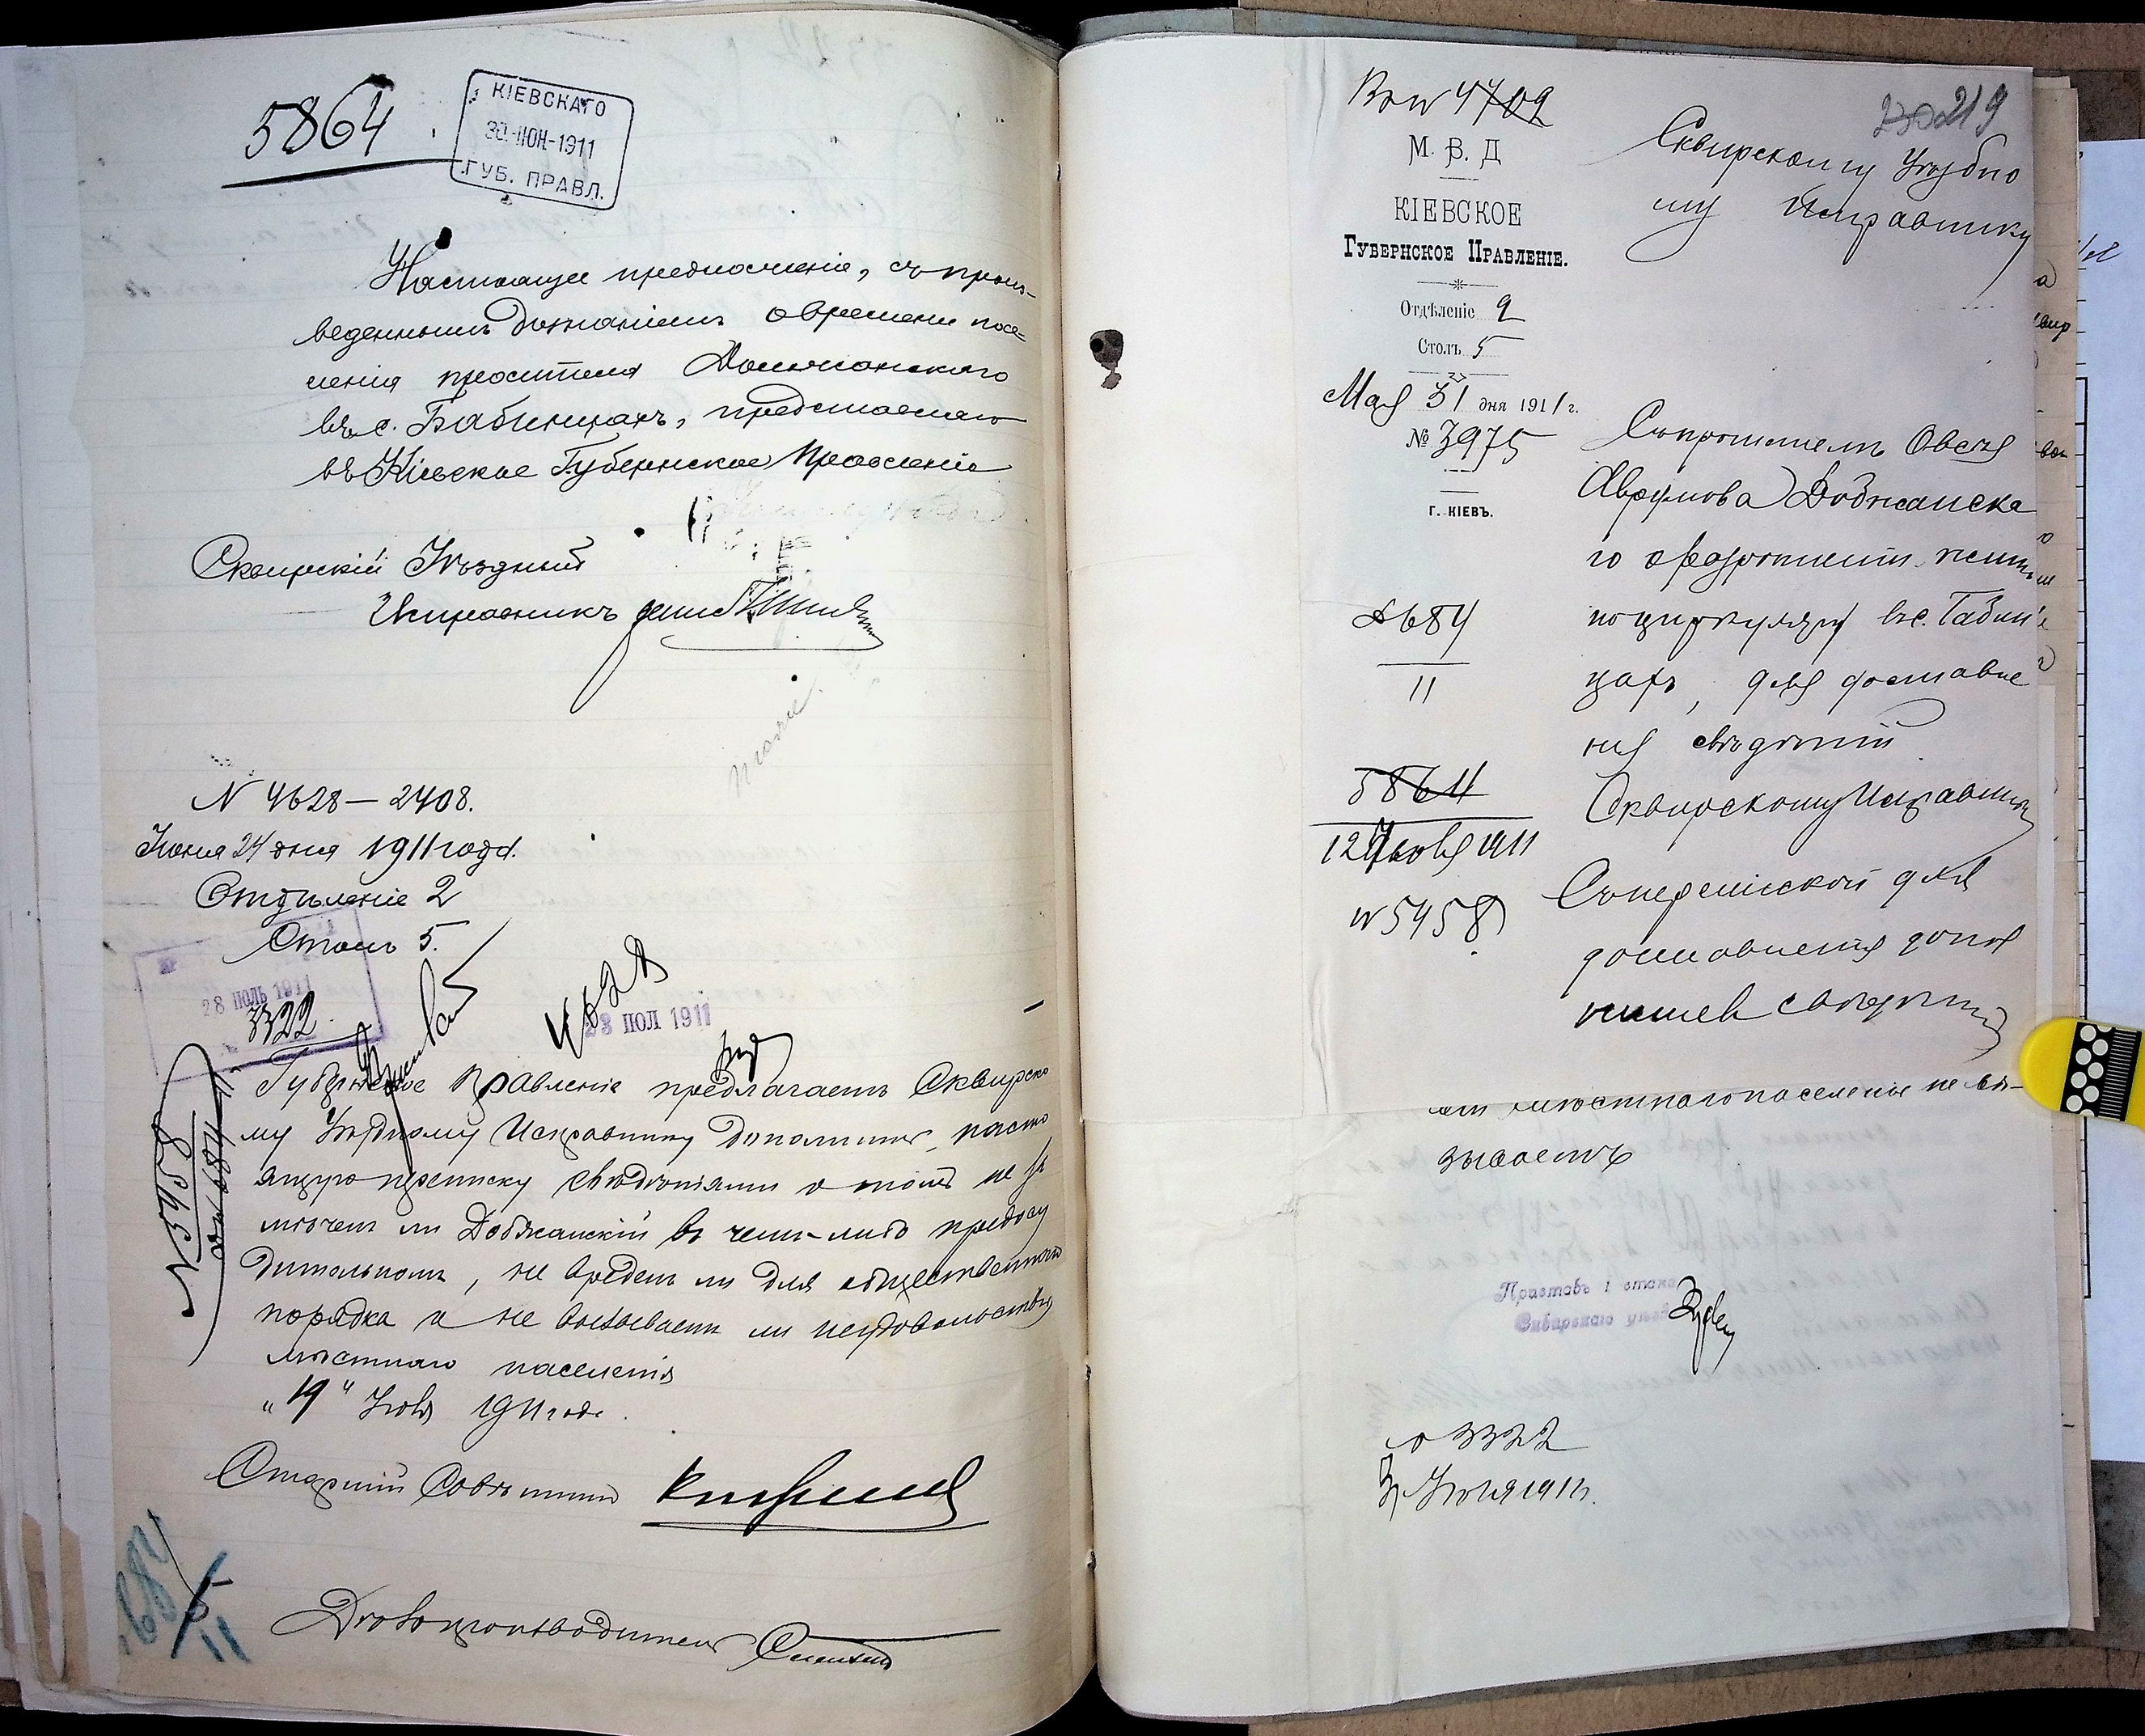 5864
КІЕВСКАГО
30 ІЮН 1911
ГУБ. ПРАВЛ.
Настоящее предложеніе, съ произ-
веденнымъ дознаніемъ о времени посе-
ленія просителя
въ с. Бабинцахъ, представляю
въ Кіевское Губернское Правленіе
Сквирскій Уѣздный
Исправникъ
N 4628 — 2408.
Іюня 24 дня 1911 года.
Отдѣленіе 2
Столъ 5.
28 ІЮЛЬ 1911
3322
4628
23 ІЮЛ 1911
Губернское Правленіе предлагаетъ Сквирско
му Уѣздному Исправнику дополнить насто
ящую переписку свѣдѣніями о томъ не за
мѣченъ ли Добжанскій въ чемъ-либо предосу
дительномъ, не вреденъ ли для общественнаго
порядка и не вызываетъ ли неудовольствія
мѣстнаго населенія
„19" Іюля 1911 года.
N 5458
Старшій Совѣтникъ
Дѣлопроизводитель
684
11
219
Вх N 4709
М. В. Д
КІЕВСКОЕ
ГУБЕРНСКОЕ ПРАВЛЕНІЕ.
Отдѣленіе 2
Столъ 5
Мая 31 дня 1911 г.
№ 3975
Г. КІЕВЪ.
684
11
5864
12 Іюля 1911
N 5458
Сквирскому Уѣздно
му Исправнику
Съ прошеніемъ Овсея
Аврумова Добжанска
го о разрѣшеніи жить
по циркуляру въ с. Бабин
цахъ, для доставле
нія свѣдѣній
Сквирскому Исправнику
Съ перепиской для
доставленія допол
нител свѣдѣній
мѣстнаго населенія не вы-
зываетъ
Приставъ 1 стана
Сквирскаго уѣзда
N 3322
Іюля 1911 г.